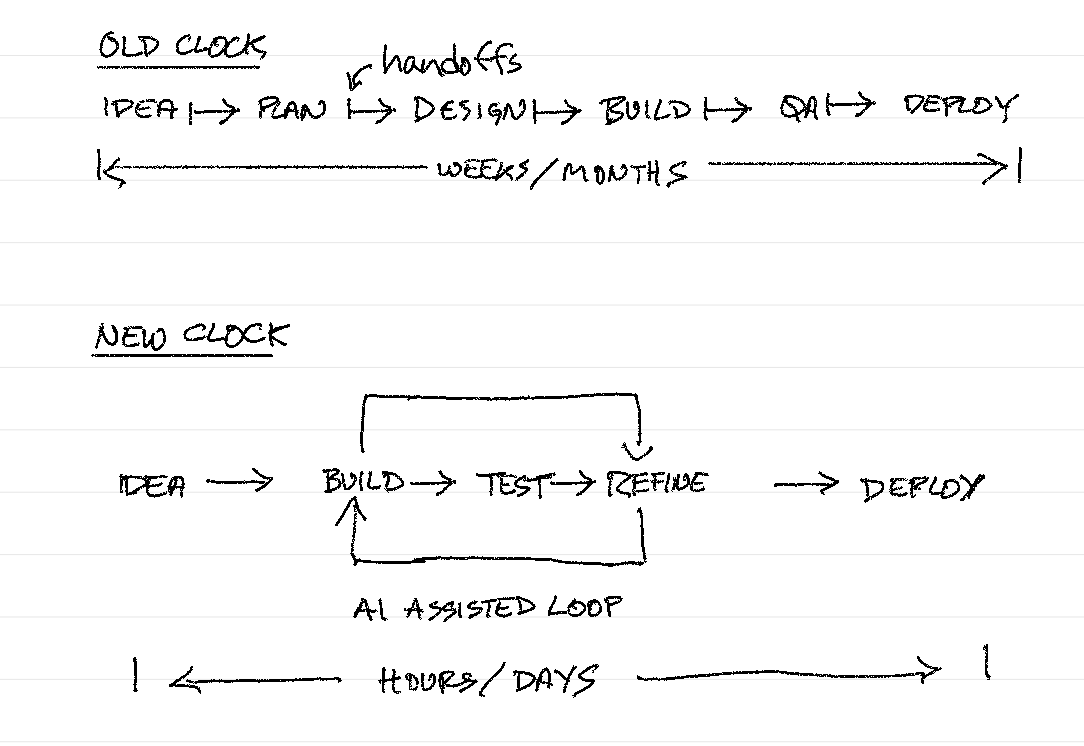 OLD CLOCK
handoffs
IDEA PLAN DESIGN BUILD QA DEPLOY
WEEKS/MONTHS
NEW CLOCK
IDEA BUILD TEST REFINE DEPLOY
AI ASSISTED LOOP
HOURS/DAYS